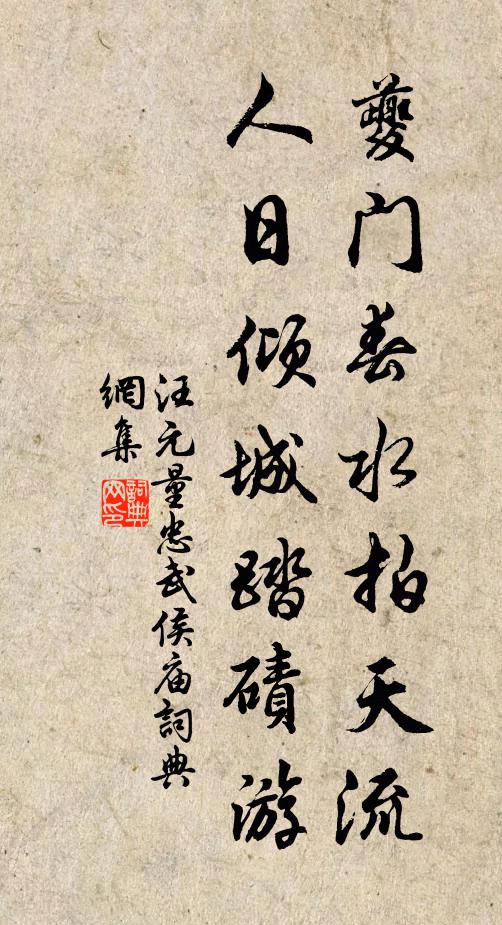 夔门春水拍天流
人日倾城踏碛游
汪元量忠武侯庙詞典
網集
詞典
网印